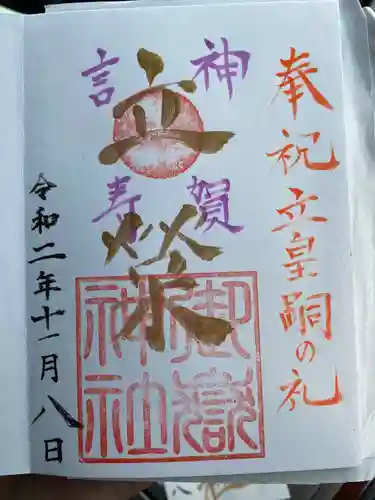 奉祝立皇嗣の礼
神賀
言壽
立栄
御嶽神社
令和二年十一月八日